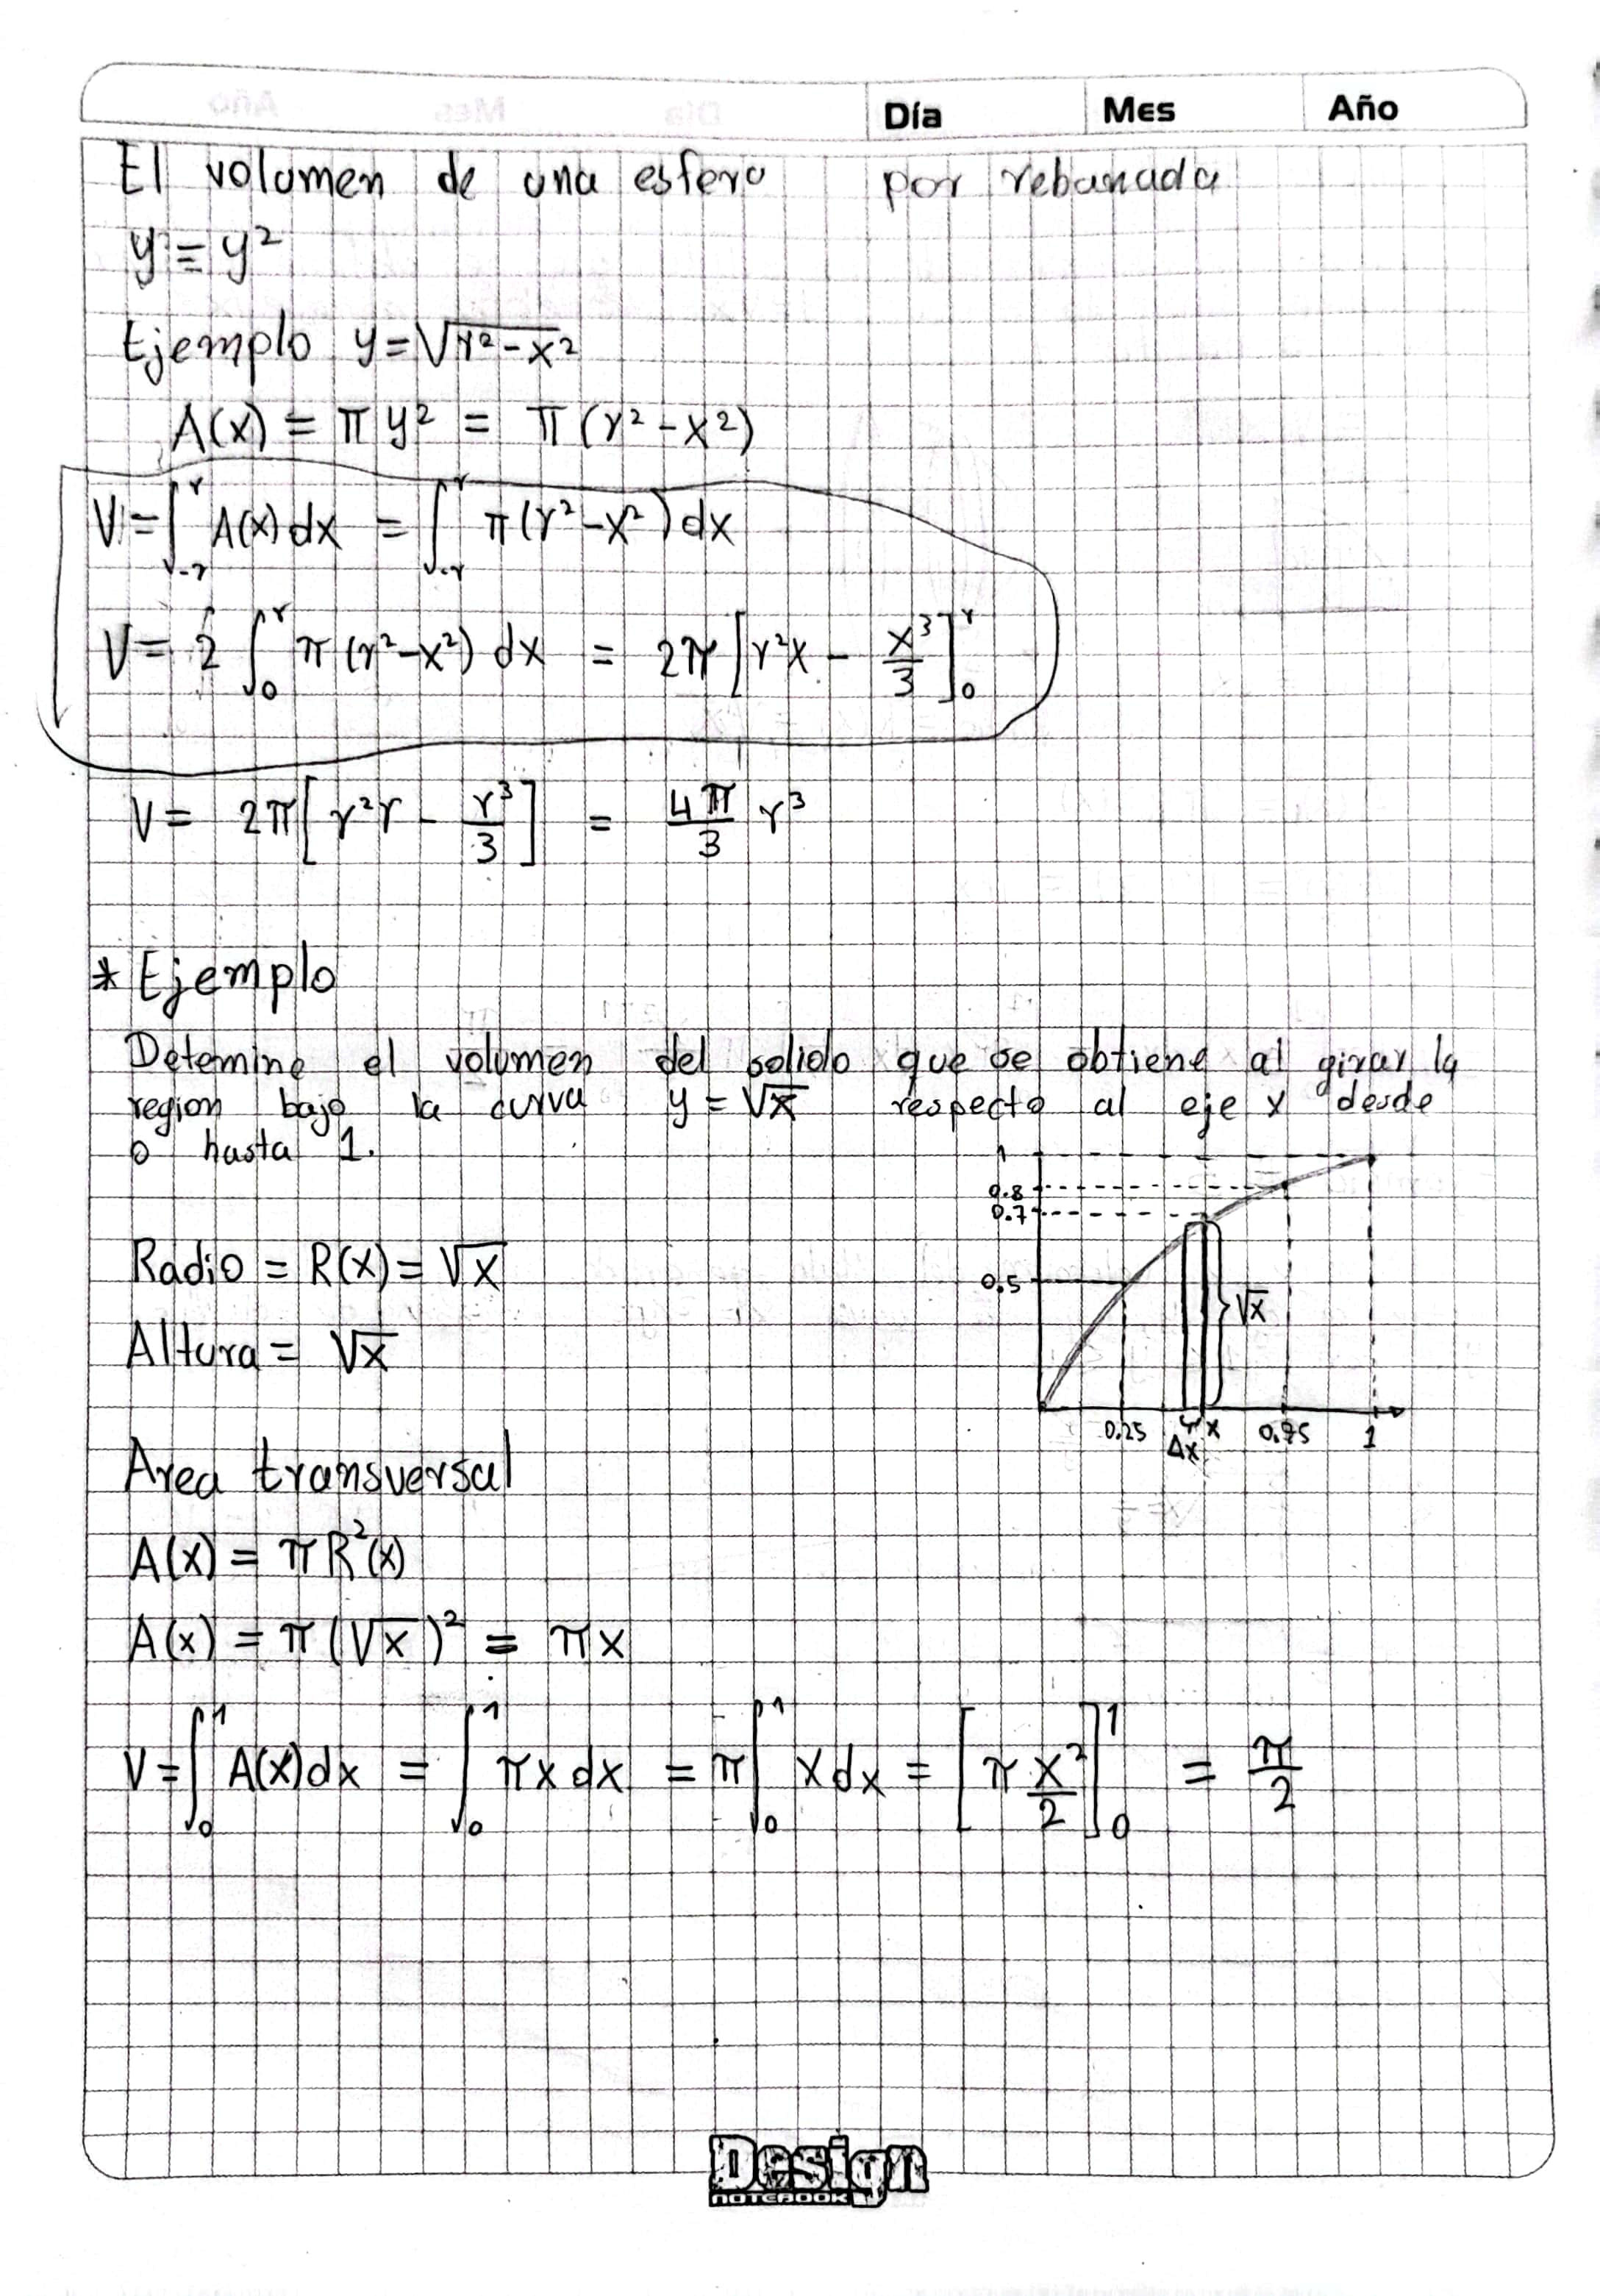 Día Mes Año
El volumen de una esfera por rebanada
y = y²
Ejemplo y = √(r² - x²)
A(x) = π y² = π (r² - x²)
V = ∫_{-r}^{r} A(x) dx = ∫_{-r}^{r} π (r² - x²) dx
V = 2 ∫_0^r π (r² - x²) dx = 2π [r²x - x³/3]_0^r
V = 2π [r²r - r³/3] = 4π/3 r³
* Ejemplo
Detemine el volumen del solido que se obtiene al girar la
region bajo la curva y = √x respecto al eje x desde
0 hasta 1.
1
0.8
0.7
Radio = R(x) = √x
0.5
√x
Altura = √x
0.25 Δx x 0.75 1
Area transversal
A(x) = π R²(x)
A(x) = π (√x)² = πx
V = ∫_0^1 A(x) dx = ∫_0^1 πx dx = π ∫_0^1 x dx = [π x²/2]_0^1 = π/2
Design
NOTEBOOK